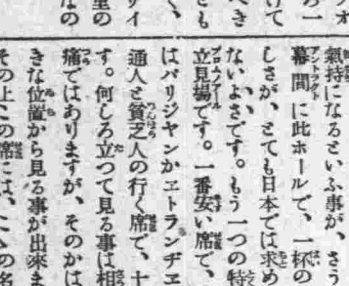 の一
けて
べき
とも
く、
サイ
里の
なの
氣持になるといふ事が、さう
幕間に此ホールで、一杯の
しさが、とても日本では求め
ないよさです。もう一つの特
立見場です。一番安い席で、
はパリジヤンかエトランヂエ
通人と貧乏人の行く席で、十
す。何しろ立つて見る事は相
痛ではありますが、そのかは
きな位置から見る事が出來ま
その上この席には、